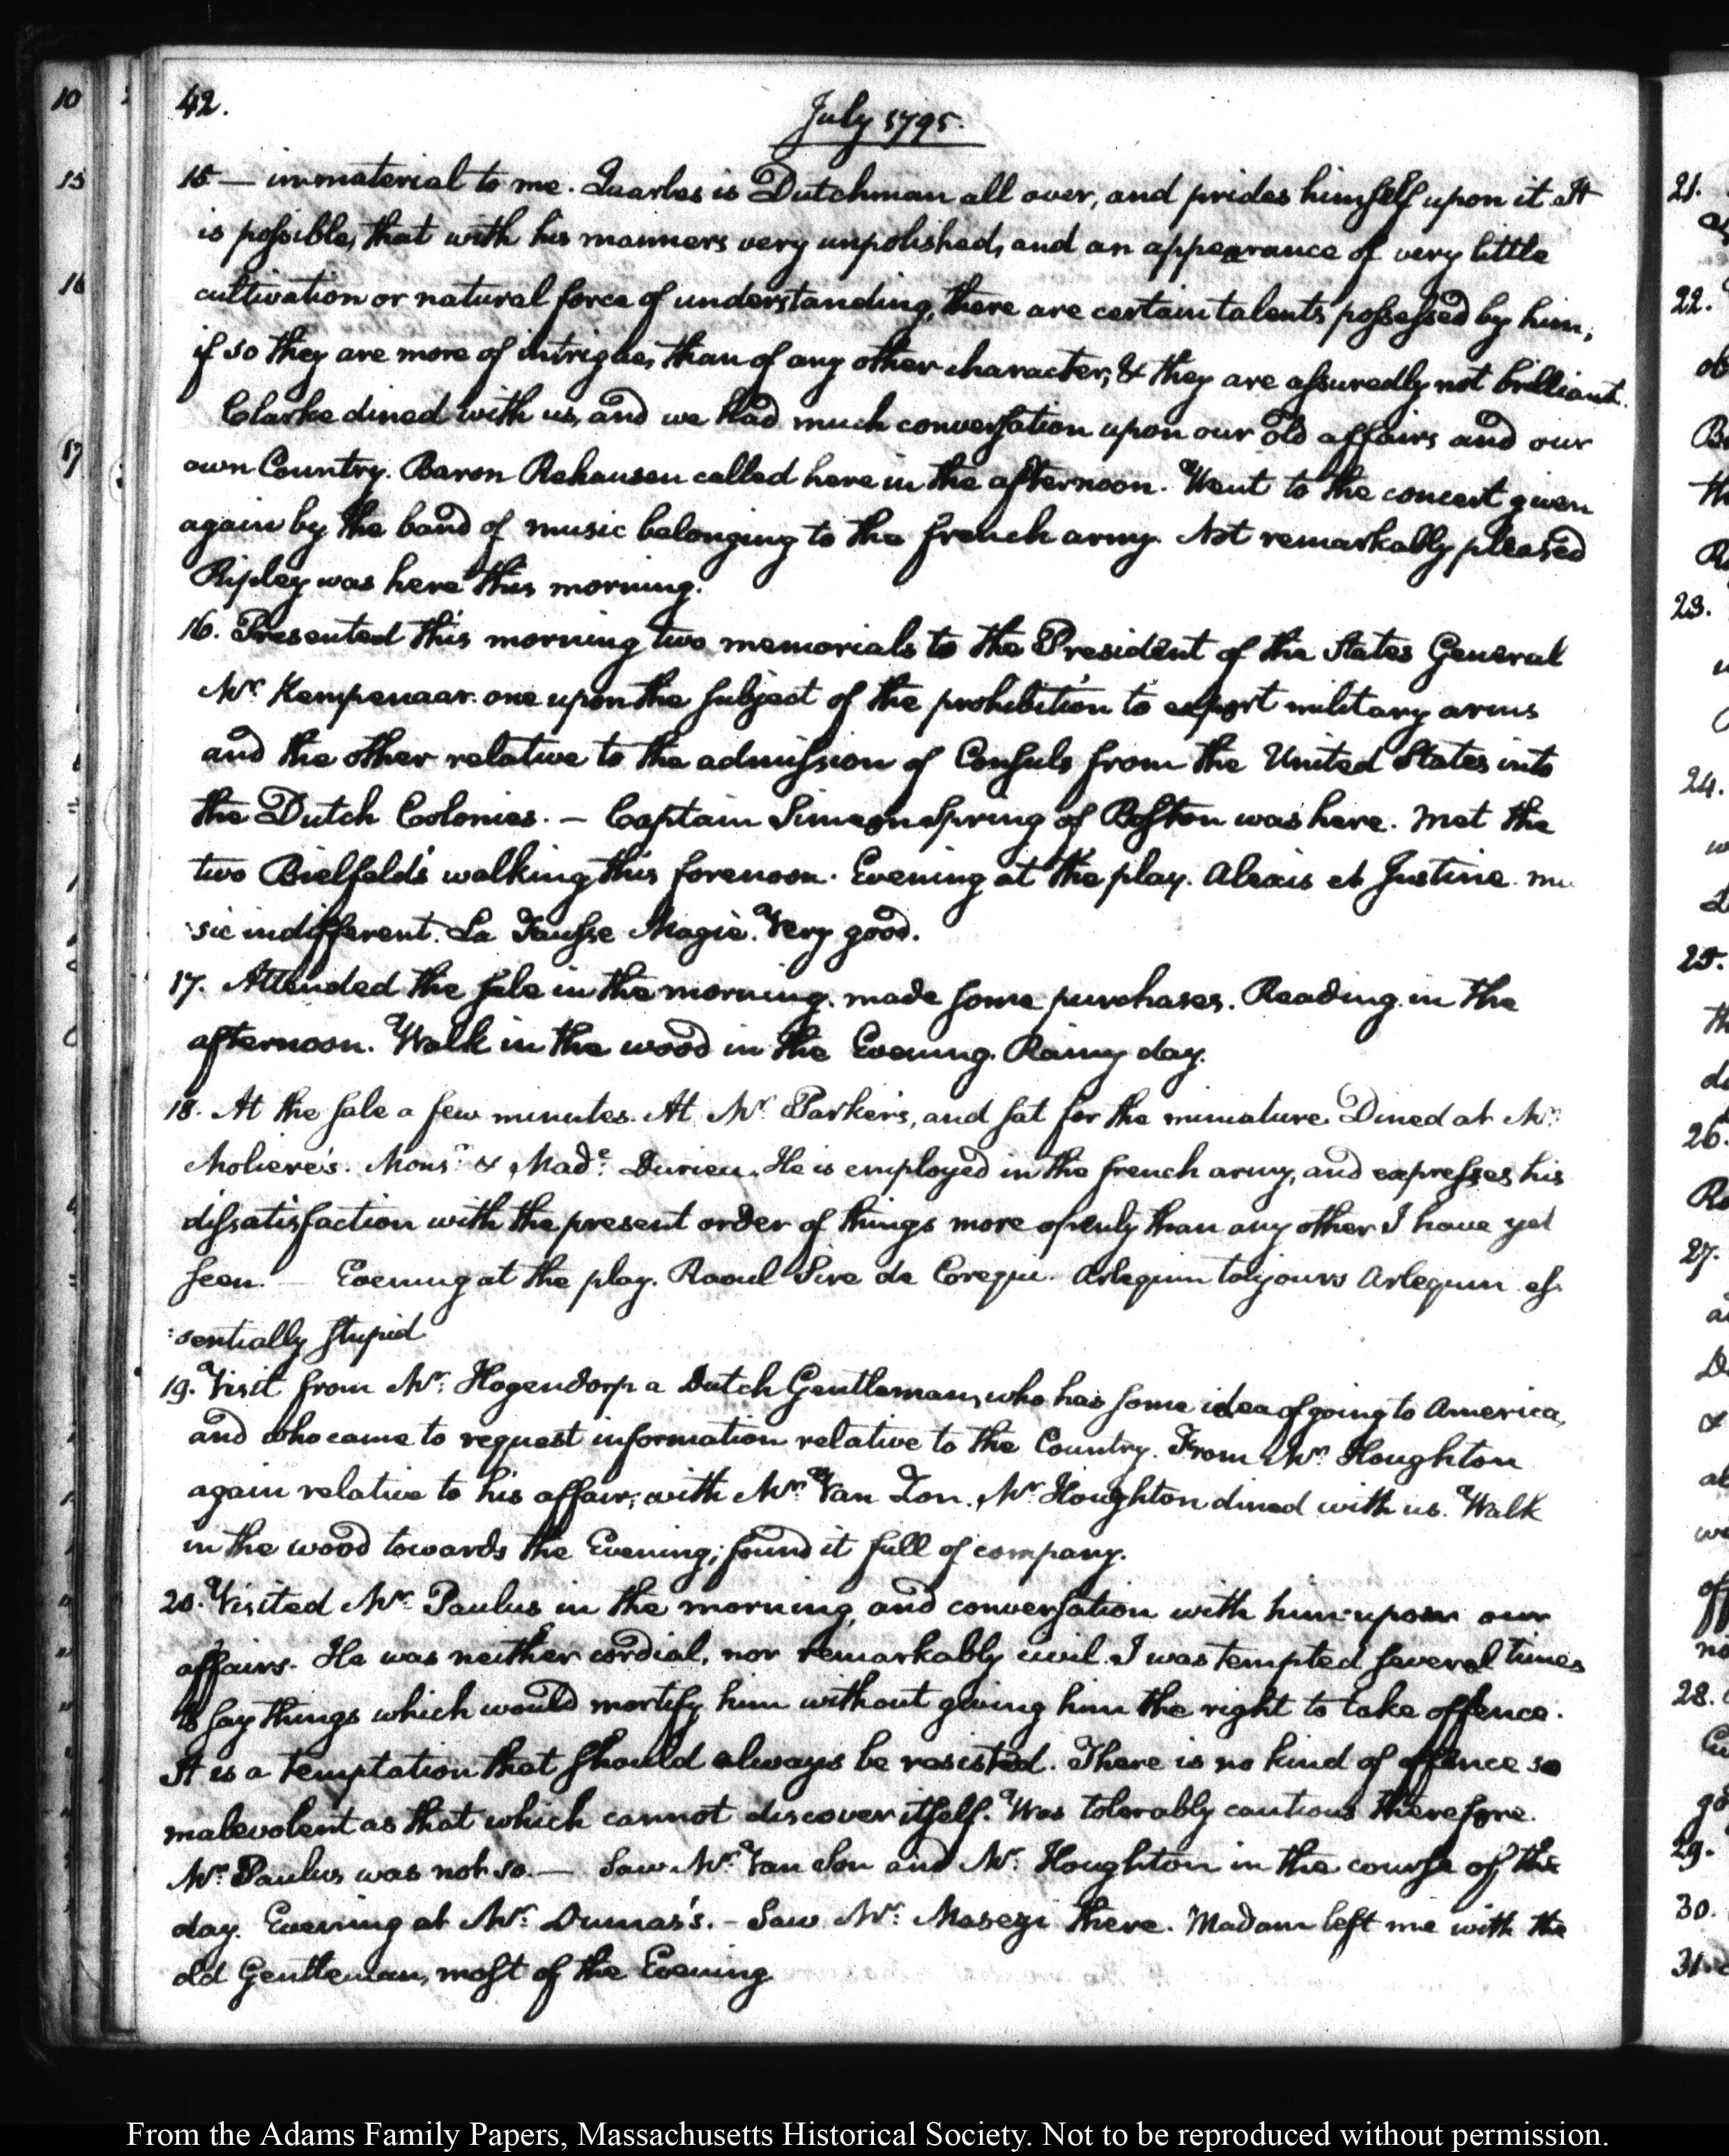 42.
July 1795.
15 — immaterial to me. Quarles is Dutchman all over, and prides himself upon it. It
is possible, that with his manners very unpolished, and an appearance of very little
cultivation or natural force of understanding, there are certain talents possessed by him;
if so they are more of intrigue, than of any other character; & they are assuredly not brilliant.
Clarke dined with us, and we had much conversation upon our old affairs and our
own Country. Baron Rehausen called here in the afternoon. Went to the concert given
again by the band of music belonging to the french army. Not remarkably pleased
Ripley was here this morning.
16. Presented this morning two memorials to the President of the States General
Mr. Kempenaar. one upon the subject of the prohibition to export military arms
and the other relative to the admission of Consuls from the United States into
the Dutch Colonies. — Captain Simeon Spring of Boston was here. met the
two Bielfeld's walking this forenoon. Evening at the play. Alexis et Justine. mu
:sic indifferent. La Fausse Magie. Very good.
17. Attended the sale in the morning. made some purchases. Reading in the
afternoon. Walk in the wood in the Evening. Rainy day.
18. At the sale a few minutes. At Mr. Parker's, and sat for the miniature. Dined at Mr.
Moliere's. Monsr. & Made. Durieu. He is employed in the french army, and expresses his
dissatisfaction with the present order of things more openly than any other I have yet
seen. — Evening at the play. Raoul Sire de Crequi. Arlequin toujours Arlequin. es
:sentially stupid
19. Visit from Mr. Hogendorp a Dutch Gentleman, who has some idea of going to America,
and who came to request information relative to the Country. From Mr. Houghton
again relative to his affair; with Mr. Van Son. Mr. Houghton dined with us. Walk
in the wood towards the Evening; found it full of company.
20. Visited Mr. Paulus in the morning, and conversation with him upon our
affairs. He was neither cordial, nor remarkably civil. I was tempted several times
to say things which would mortify him without giving him the right to take offence.
It is a temptation that should always be resisted. There is no kind of offence so
malevolent as that which cannot discover itself. Was tolerably cautious therefore.
Mr. Paulus was not so. — Saw Mr. Van Son and Mr. Houghton in the course of the
day. Evening at Mr. Dumas's. — Saw Mr. Masezi there. Madam left me with the
old Gentleman, most of the Evening
From the Adams Family Papers, Massachusetts Historical Society. Not to be reproduced without permission.